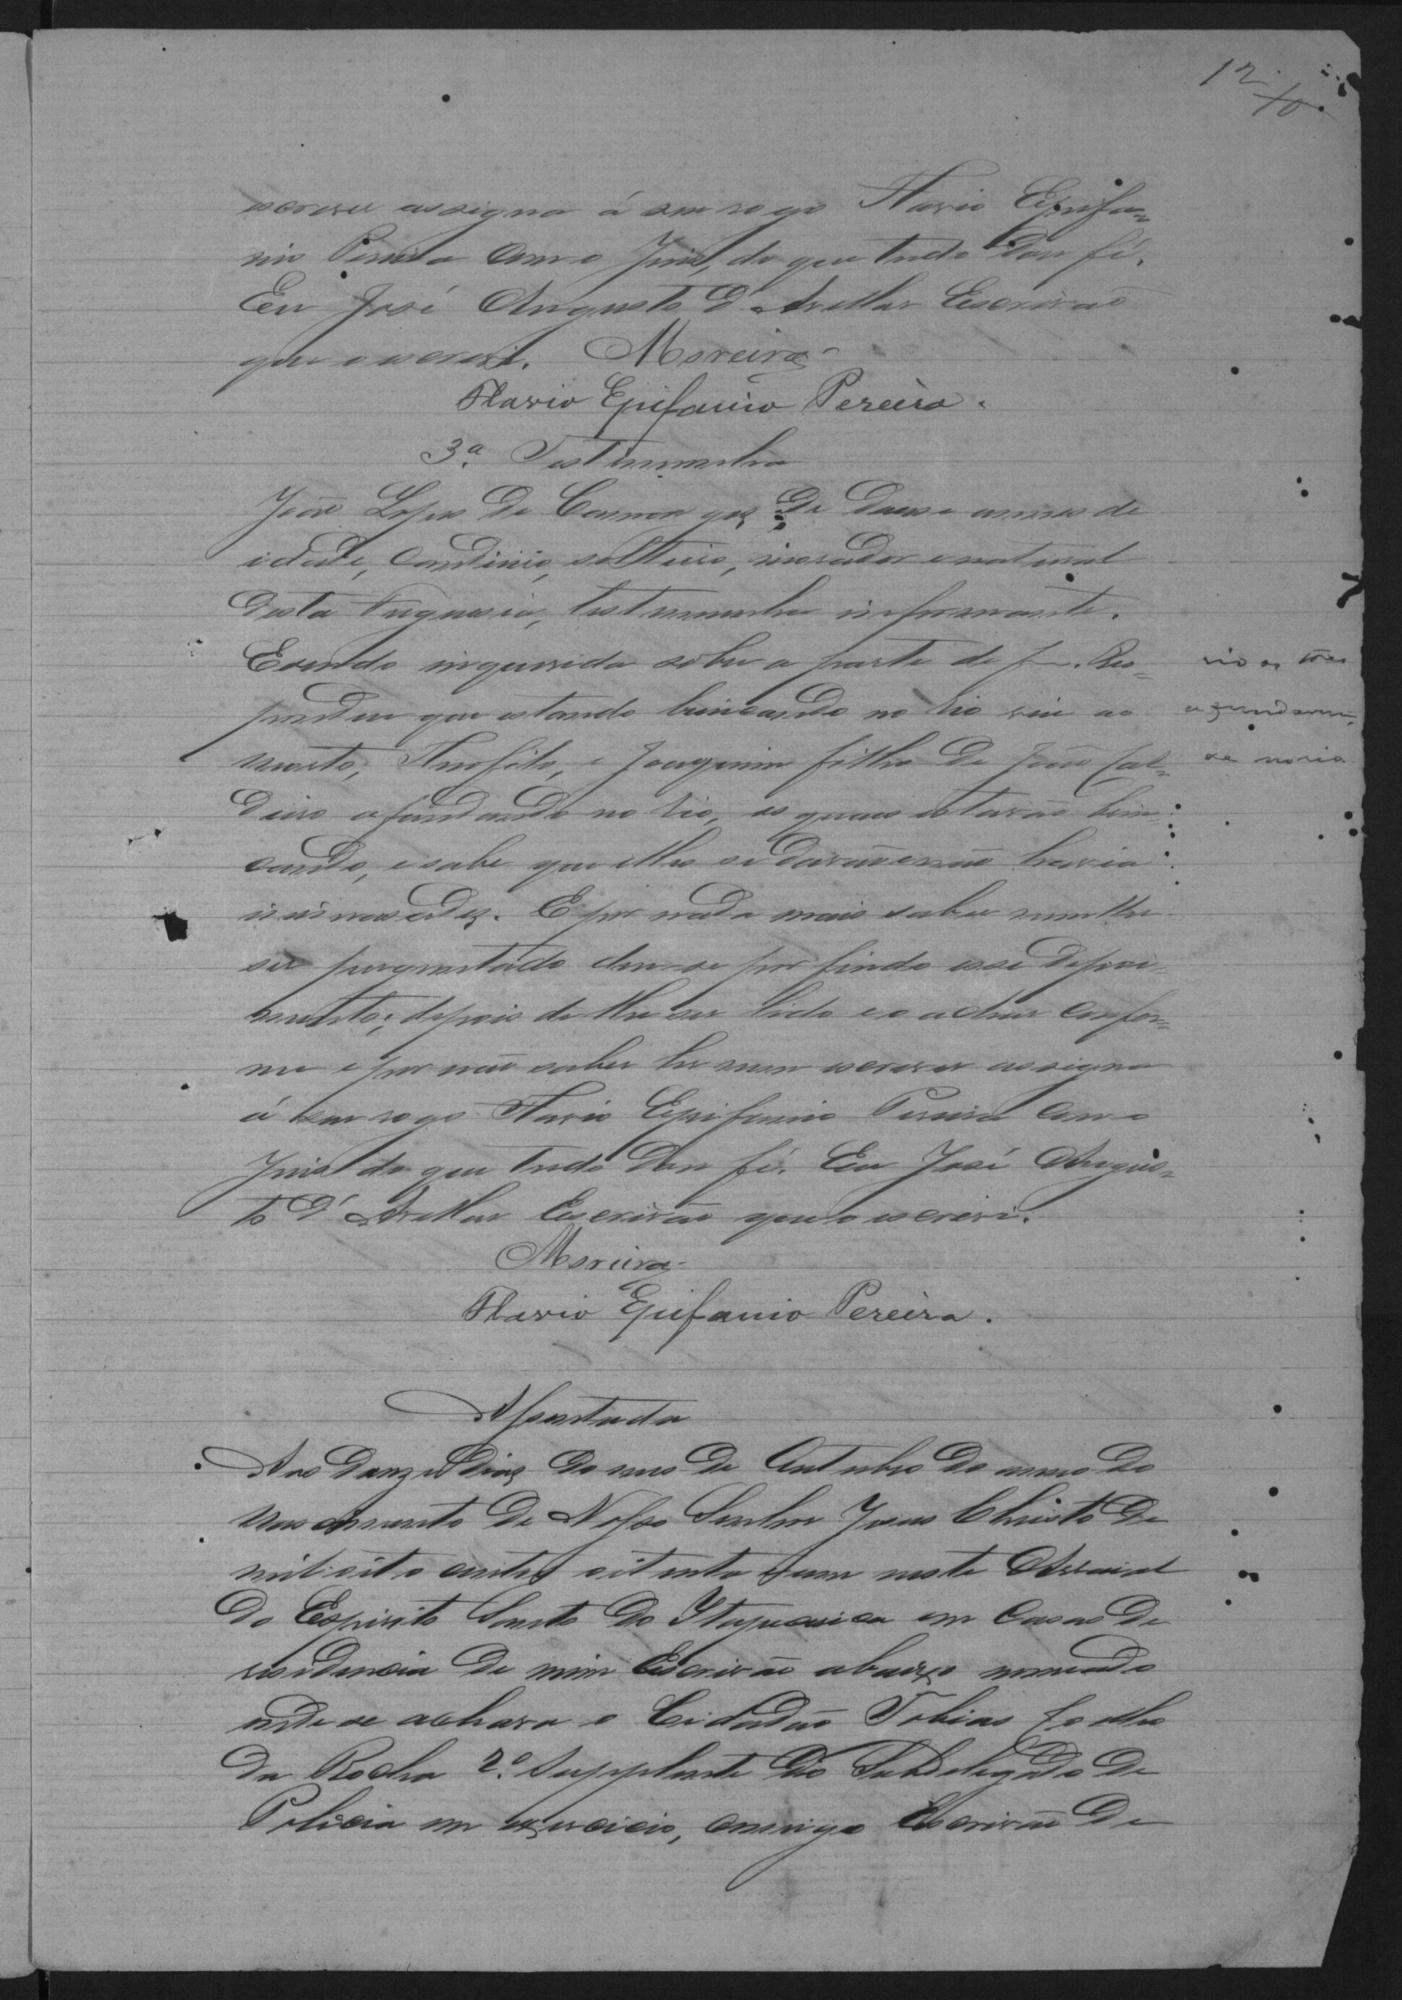 12
escrever assigna á seu rogo Flavio Epifa=
nio Pereira com o Juis, do que tudo dou fé.
Eu José Augusto d'Avellar Escrivão
que o escrevi. Moreira
Flavio Epifanio Pereira.
3ª Testemunha
João Lopes de de dose annos de
idade, solteiro, morador e natural
desta Freguesia, testemunha informante.
E sendo inquirida sobre a parte de f. Res=
pondeu que estando brincando no rio viu ao
morto, e Joaquim filho de João Cal=
deira afundando no rio, os quaes estavão brin=
cando, e sabe que elles se davão e não havia
inimisades. E por nada mais saber nem lhe
ser perguntado deu-se por findo esse depoi=
mento; depois de lhe ser lido e o achar confor=
me e por não saber ler nem escrever assigna
á seu rogo Flavio Epifanio Pereira com o
Juis do que tudo dou fé. Eu José Augus=
to d'Avellar Escrivão que o escrevi.
Moreira
Flavio Epifanio Pereira.
rio os tres
afundarem
se no rio
Assentada
Aos dias do mes de Outubro do anno do
Nascimento de Nosso Senhor Jesus Christo de
mil oito centos oitenta e um neste Arraial
do Espirito Santo do Itapecerica em casas de
residencia de mim Escrivão abaixo nomeado
onde se achava o Cidadão Tobias Coelho
da Rocha 2º Supplente do Subdelegado de
Policia em exercicio, comigo Escrivão de